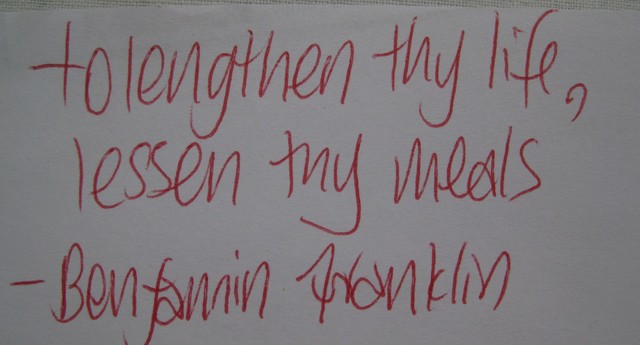 to lengthen thy life,
lessen thy meals
- Benjamin Franklin